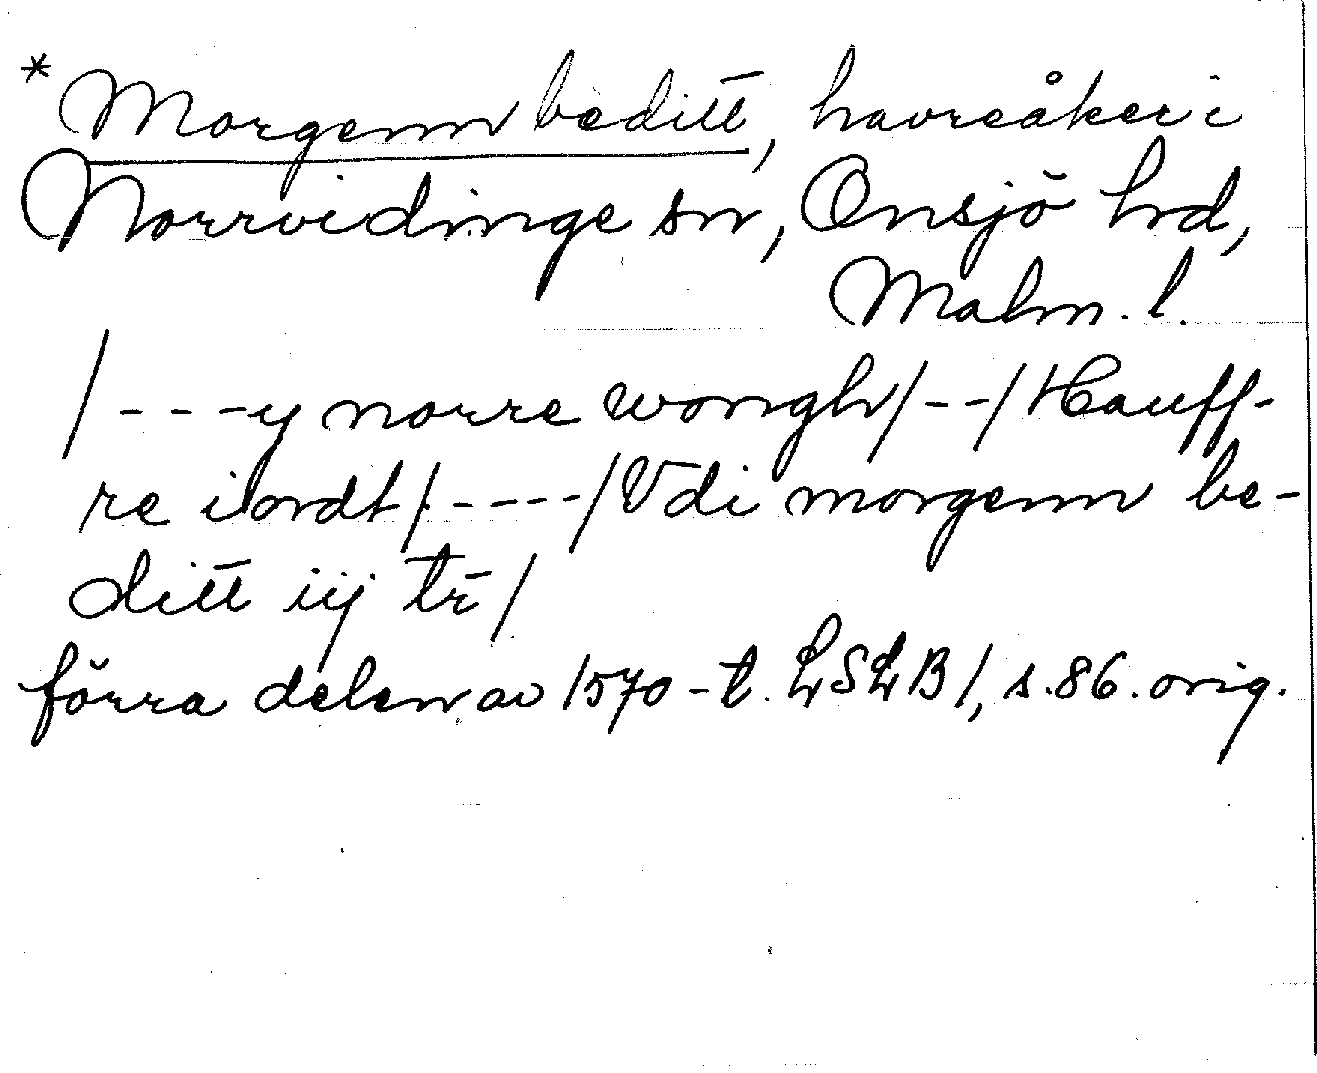 *Morgenn beditt, havreåker i
Norrvidinge sn, Onsjö hd,
Malm. l.
/---y norre wongh/--/Hauff-
re iordt/----/Vdi morgenn be-
ditt iij tr̄/
förra delen av 1570-t. LSLB 1, s. 86. orig.